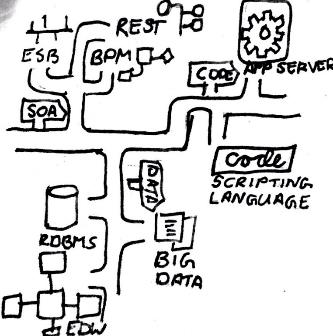 REST
ESB
BPM
CODE
APP SERVER
SOA
code
SCRIPTING
LANGUAGE
DATA
RDBMS
BIG
DATA
EDW